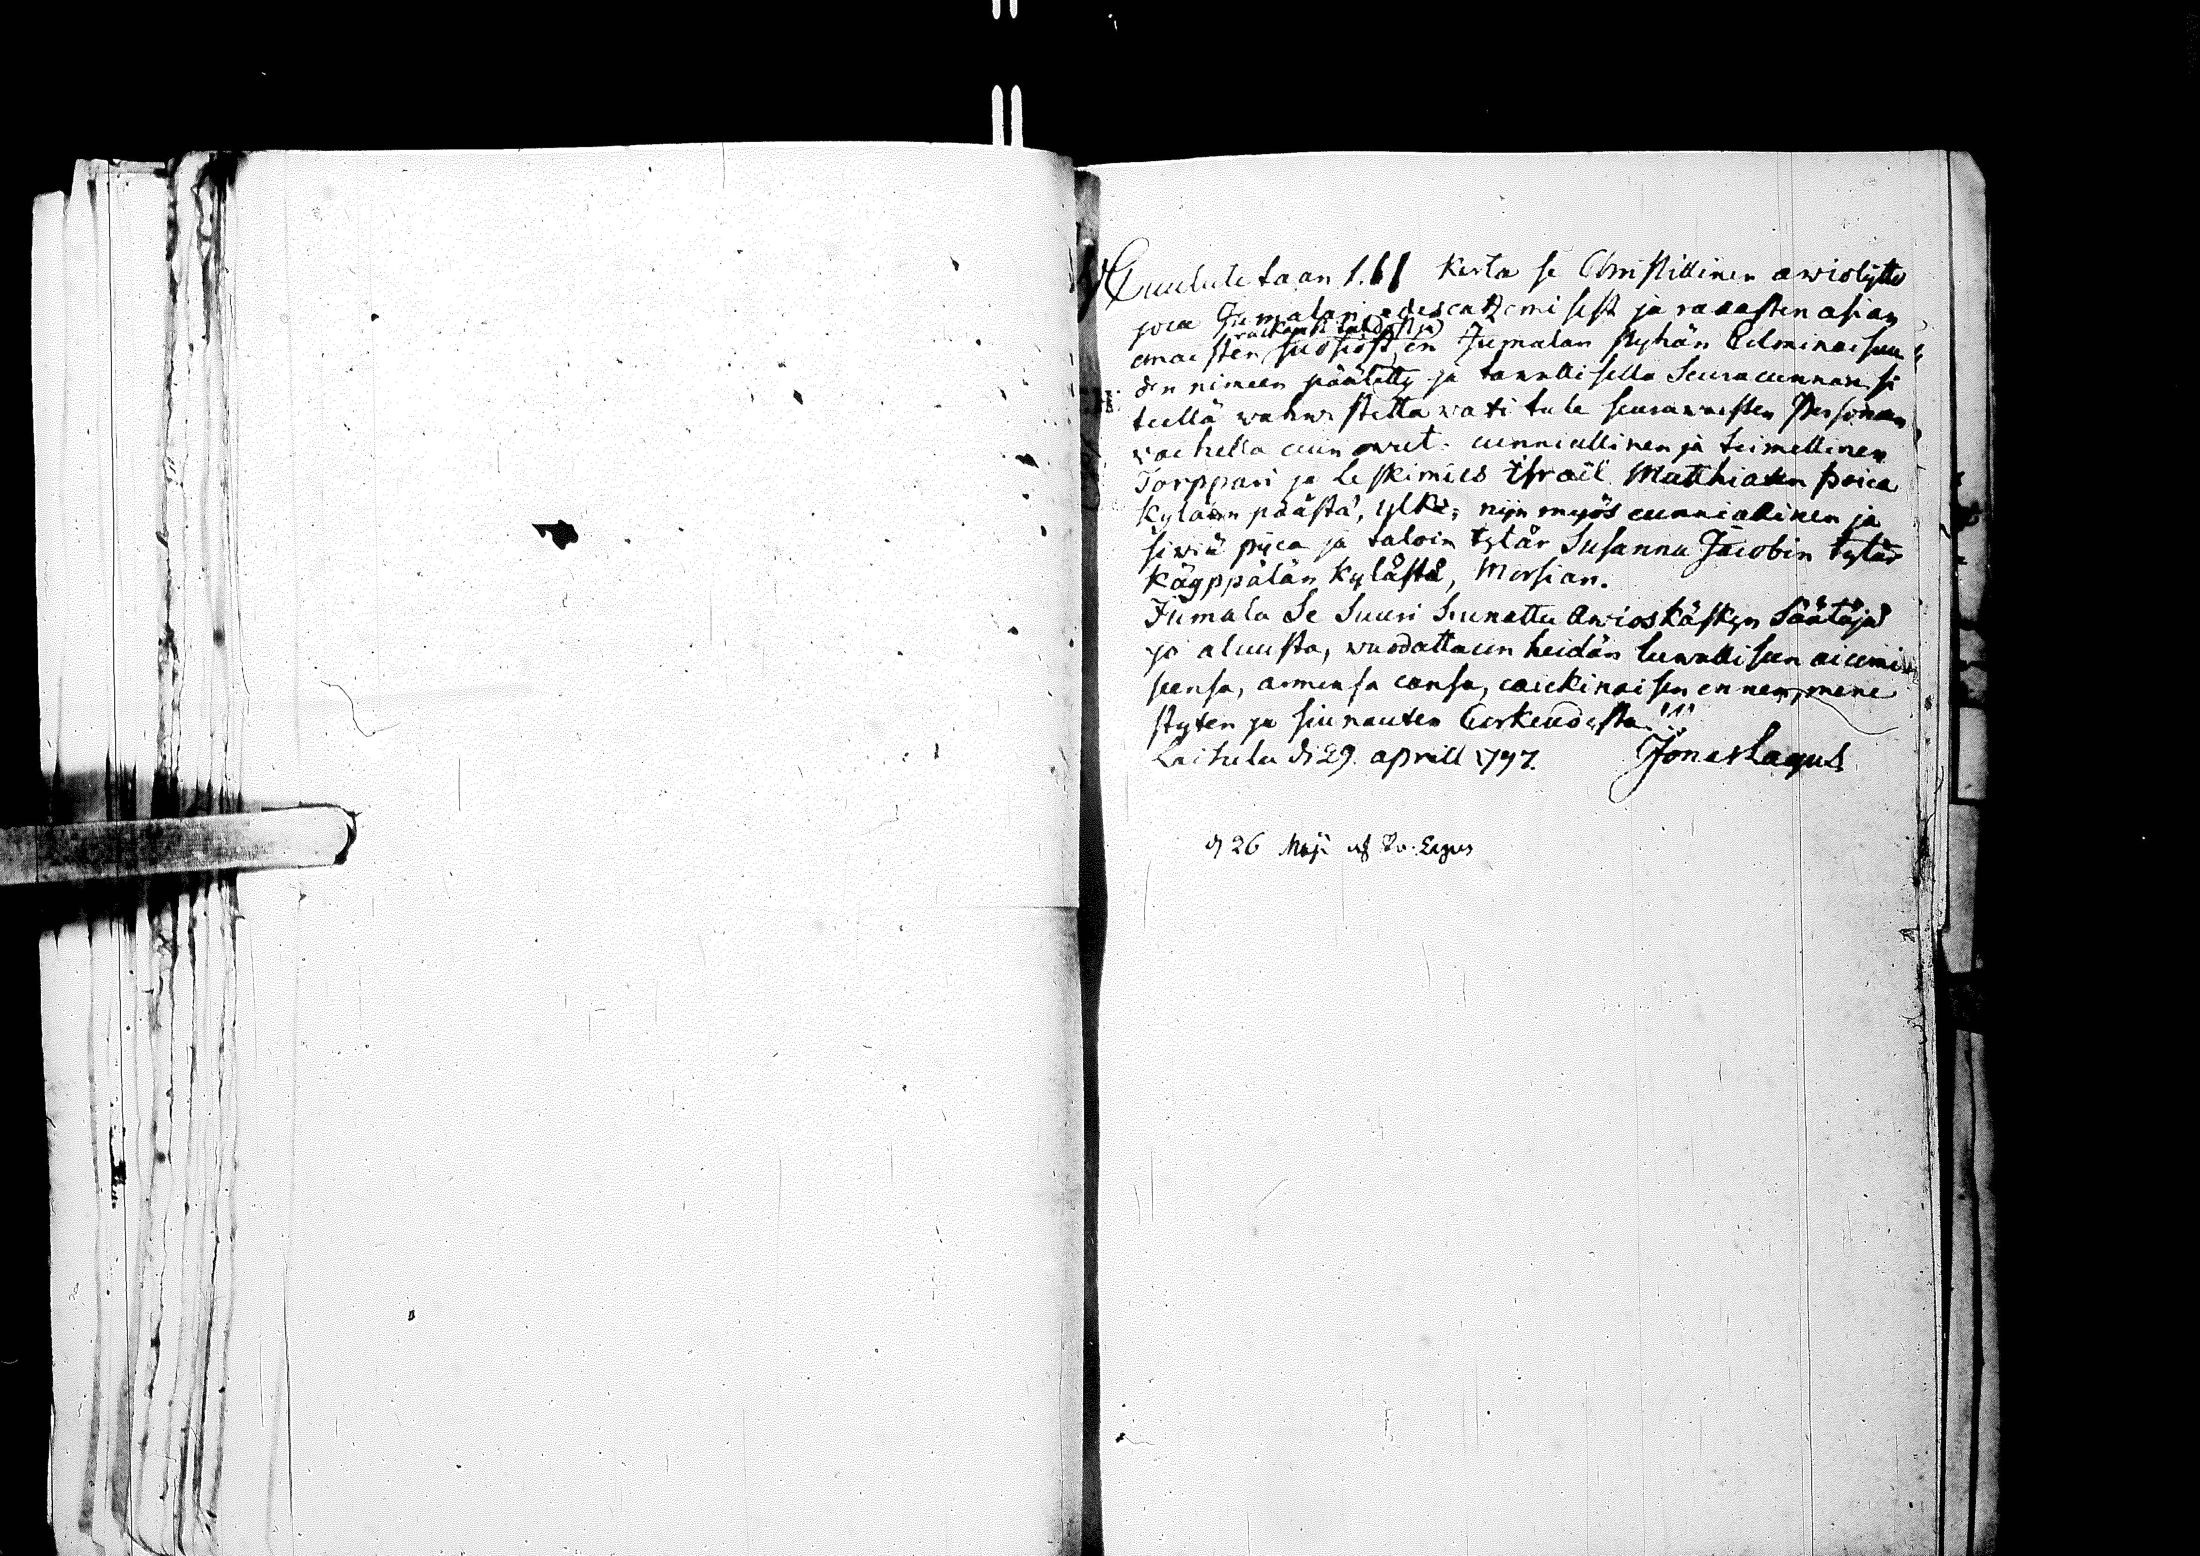 Cuulutetaan 1. kerta se Christillinen awioliitto
joca Jumalan edescatzemisest ja racasten asian
raickamb tahdost ja
omaisten suosiost, on Jumalan Pyhän Colminaisuu
den nimeen päätetty ja tawallisella Seuracunnan si
teellä wahwistettawaxi tule seurawaisten Personain
waihella cuin owat: cunniallinen ja toimellinen
Torppari ja Leskimies Israël Matthiaxen poica
Kylänpäästä, ylkä; nijn myös cunniallinen ja
siwiä pijca ja taloin tytär Susanna Jacobin tytär
Käyppälän Kylästä, Morsian.
Jumala Se Suuri Siunattu Awioskäskyn Säätäjä
jo aluusta, wuodattacon heidän luwallisen aicomi
sensa, armonsa cansa, caickinaisen onnen, mene
styxen ja siunauxen Corkeudesta!!!
Laihela d. 29. aprill 1797. Jonas Lagus
d 26 Maji af Jo. Lagus